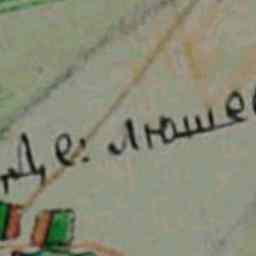 Де: люше